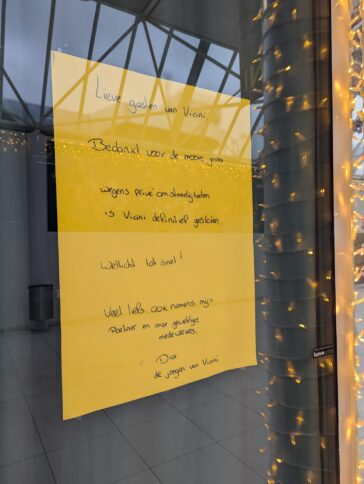 Lieve gasten van Vicini
Bedankt voor de mooie jaren
wegens privé omstandigheden
is Vicini definitief gesloten.
Wellicht tot snel!
Veel liefs, ook namens mijn
Partner en onze geweldige
medewerkers,
de jongen van Vicini